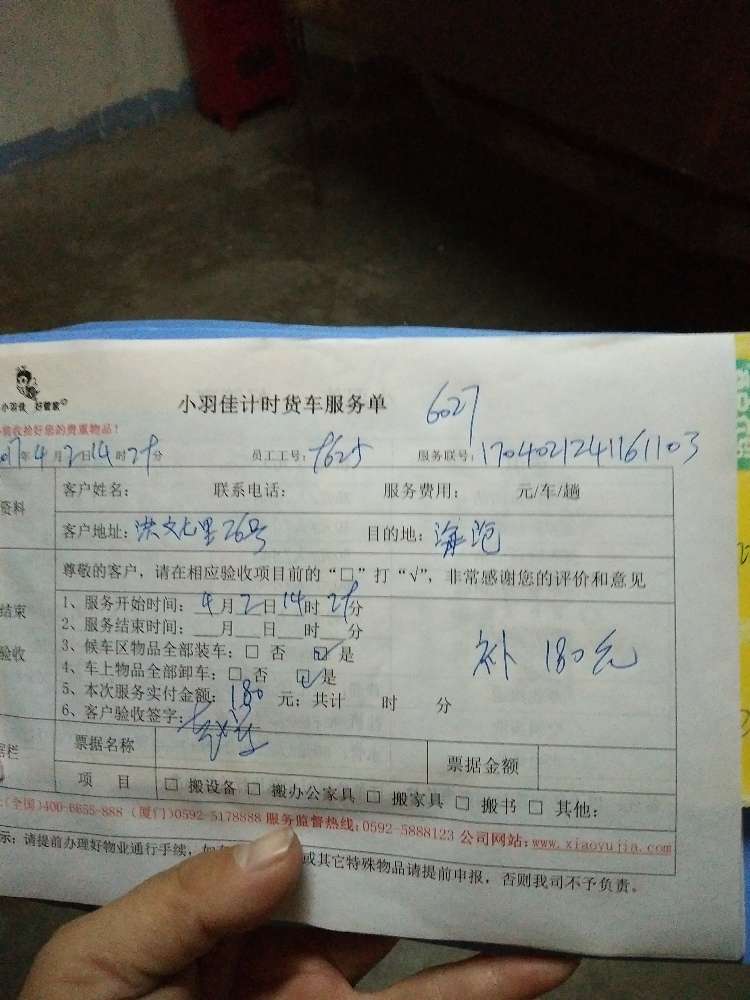 小羽佳 好管家
小羽佳计时货车服务单
6027
收拾好您的贵重物品！
年4月2日14时28分 员工工号： 服务联号：1704021241161103
资料
客户姓名： 联系电话： 服务费用： 元/车/趟
客户地址：洪文七里26号 目的地：
尊敬的客户，请在相应验收项目前的“□”打“√”，非常感谢您的评价和意见
结束
验收
1、服务开始时间：4月2日14时28分
2、服务结束时间：__月__日__时__分
3、候车区物品全部装车：□ 否 ☑ 是
4、车上物品全部卸车：□ 否 ☑ 是
补 180元
5、本次服务实付金额：180 元；共计 时 分
6、客户验收签字：
栏
票据名称 票据金额
项 目 □ 搬设备 □ 搬办公家具 □ 搬家具 □ 搬书 □ 其他：
(全国)400-6655-888 (厦门)0592-5178888 服务监督热线：0592-5888123 公司网站：www.xiaoyujia.com
示：请提前办理好物业通行手续，如 或其它特殊物品请提前申报，否则我司不予负责。